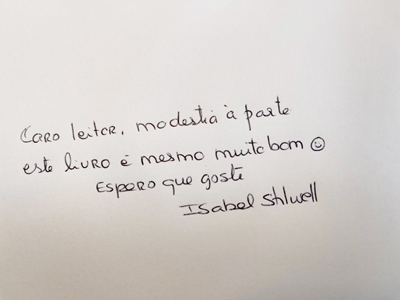 Caro leitor, modestia à parte
este livro é mesmo muito bom ☺
Espero que goste
Isabel Stilwell